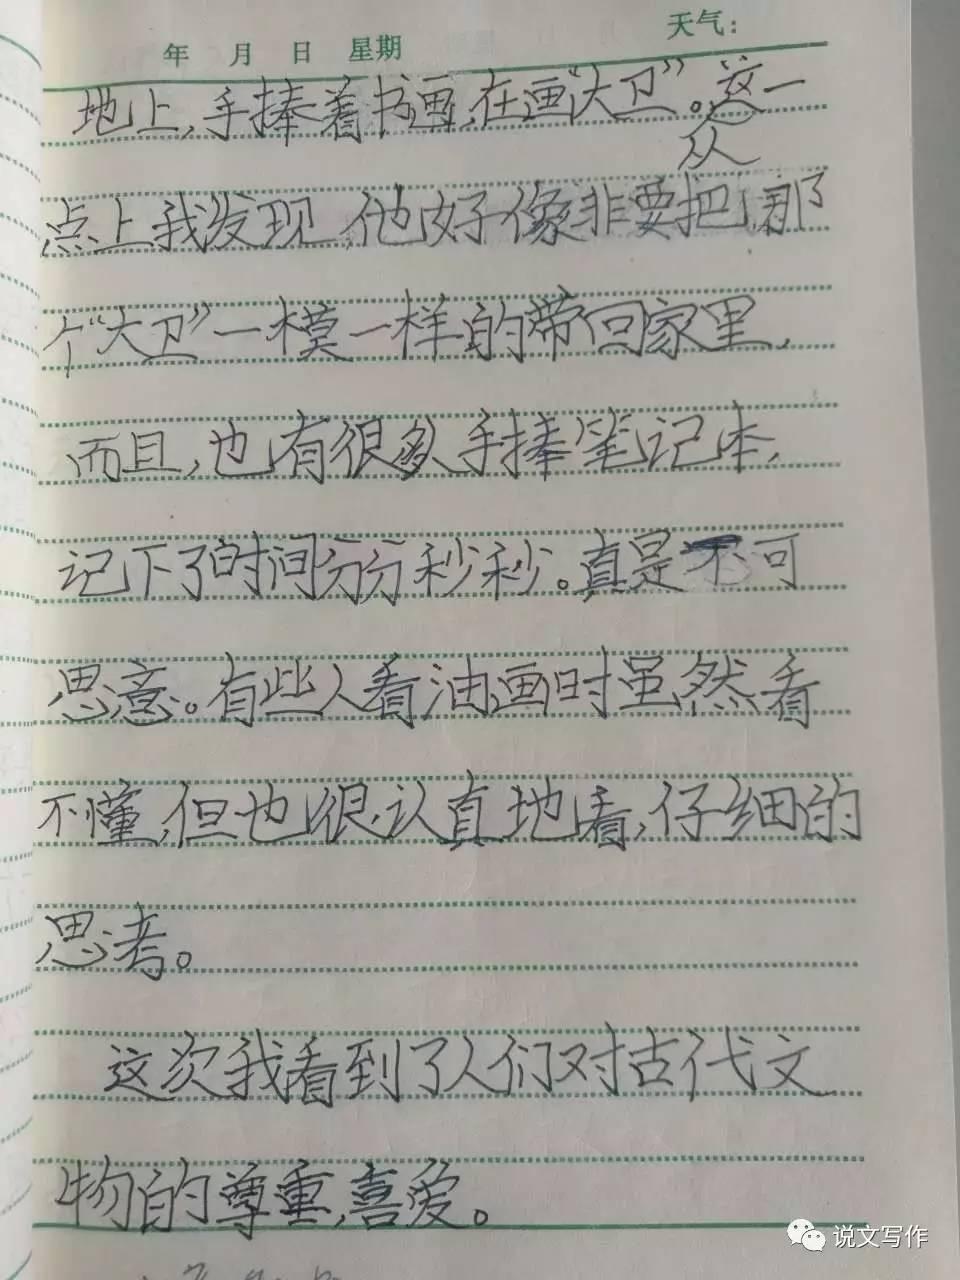 年 月 日 星期 天气：
地上，手捧着书画，在画“大卫”。从这一
点上我发现，他好像非要把那
个“大卫”一模一样的带回家里，
而且，也有很多手捧笔记本，
记下了时间分分秒秒。真是不可
思意。有些人看油画时虽然看
不懂，但也很认真地看，仔细的
思考。
这次我看到了人们对古代文
物的尊重，喜爱。
说文写作